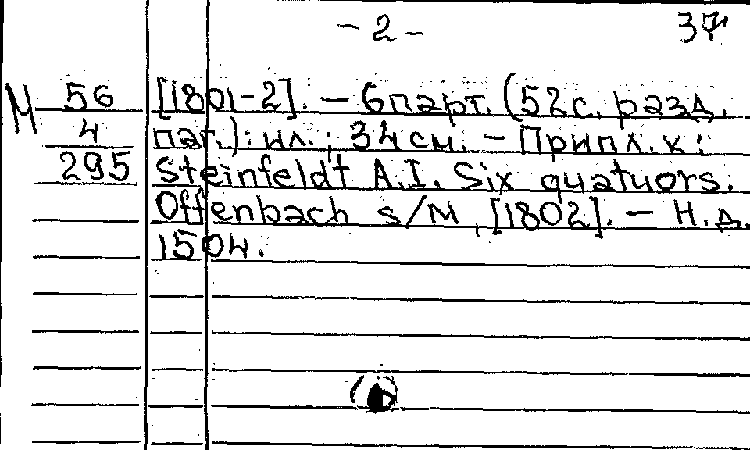 - 2 - 37
М 56 [1801-2]. - 6 парт. (52с. разд.
4 паг.): ил.; 34см. - Припл. к:
295 Steinfeldt A.I. Six quatuors.
Offenbach s/M, [1802]. - Н.д.
1504.